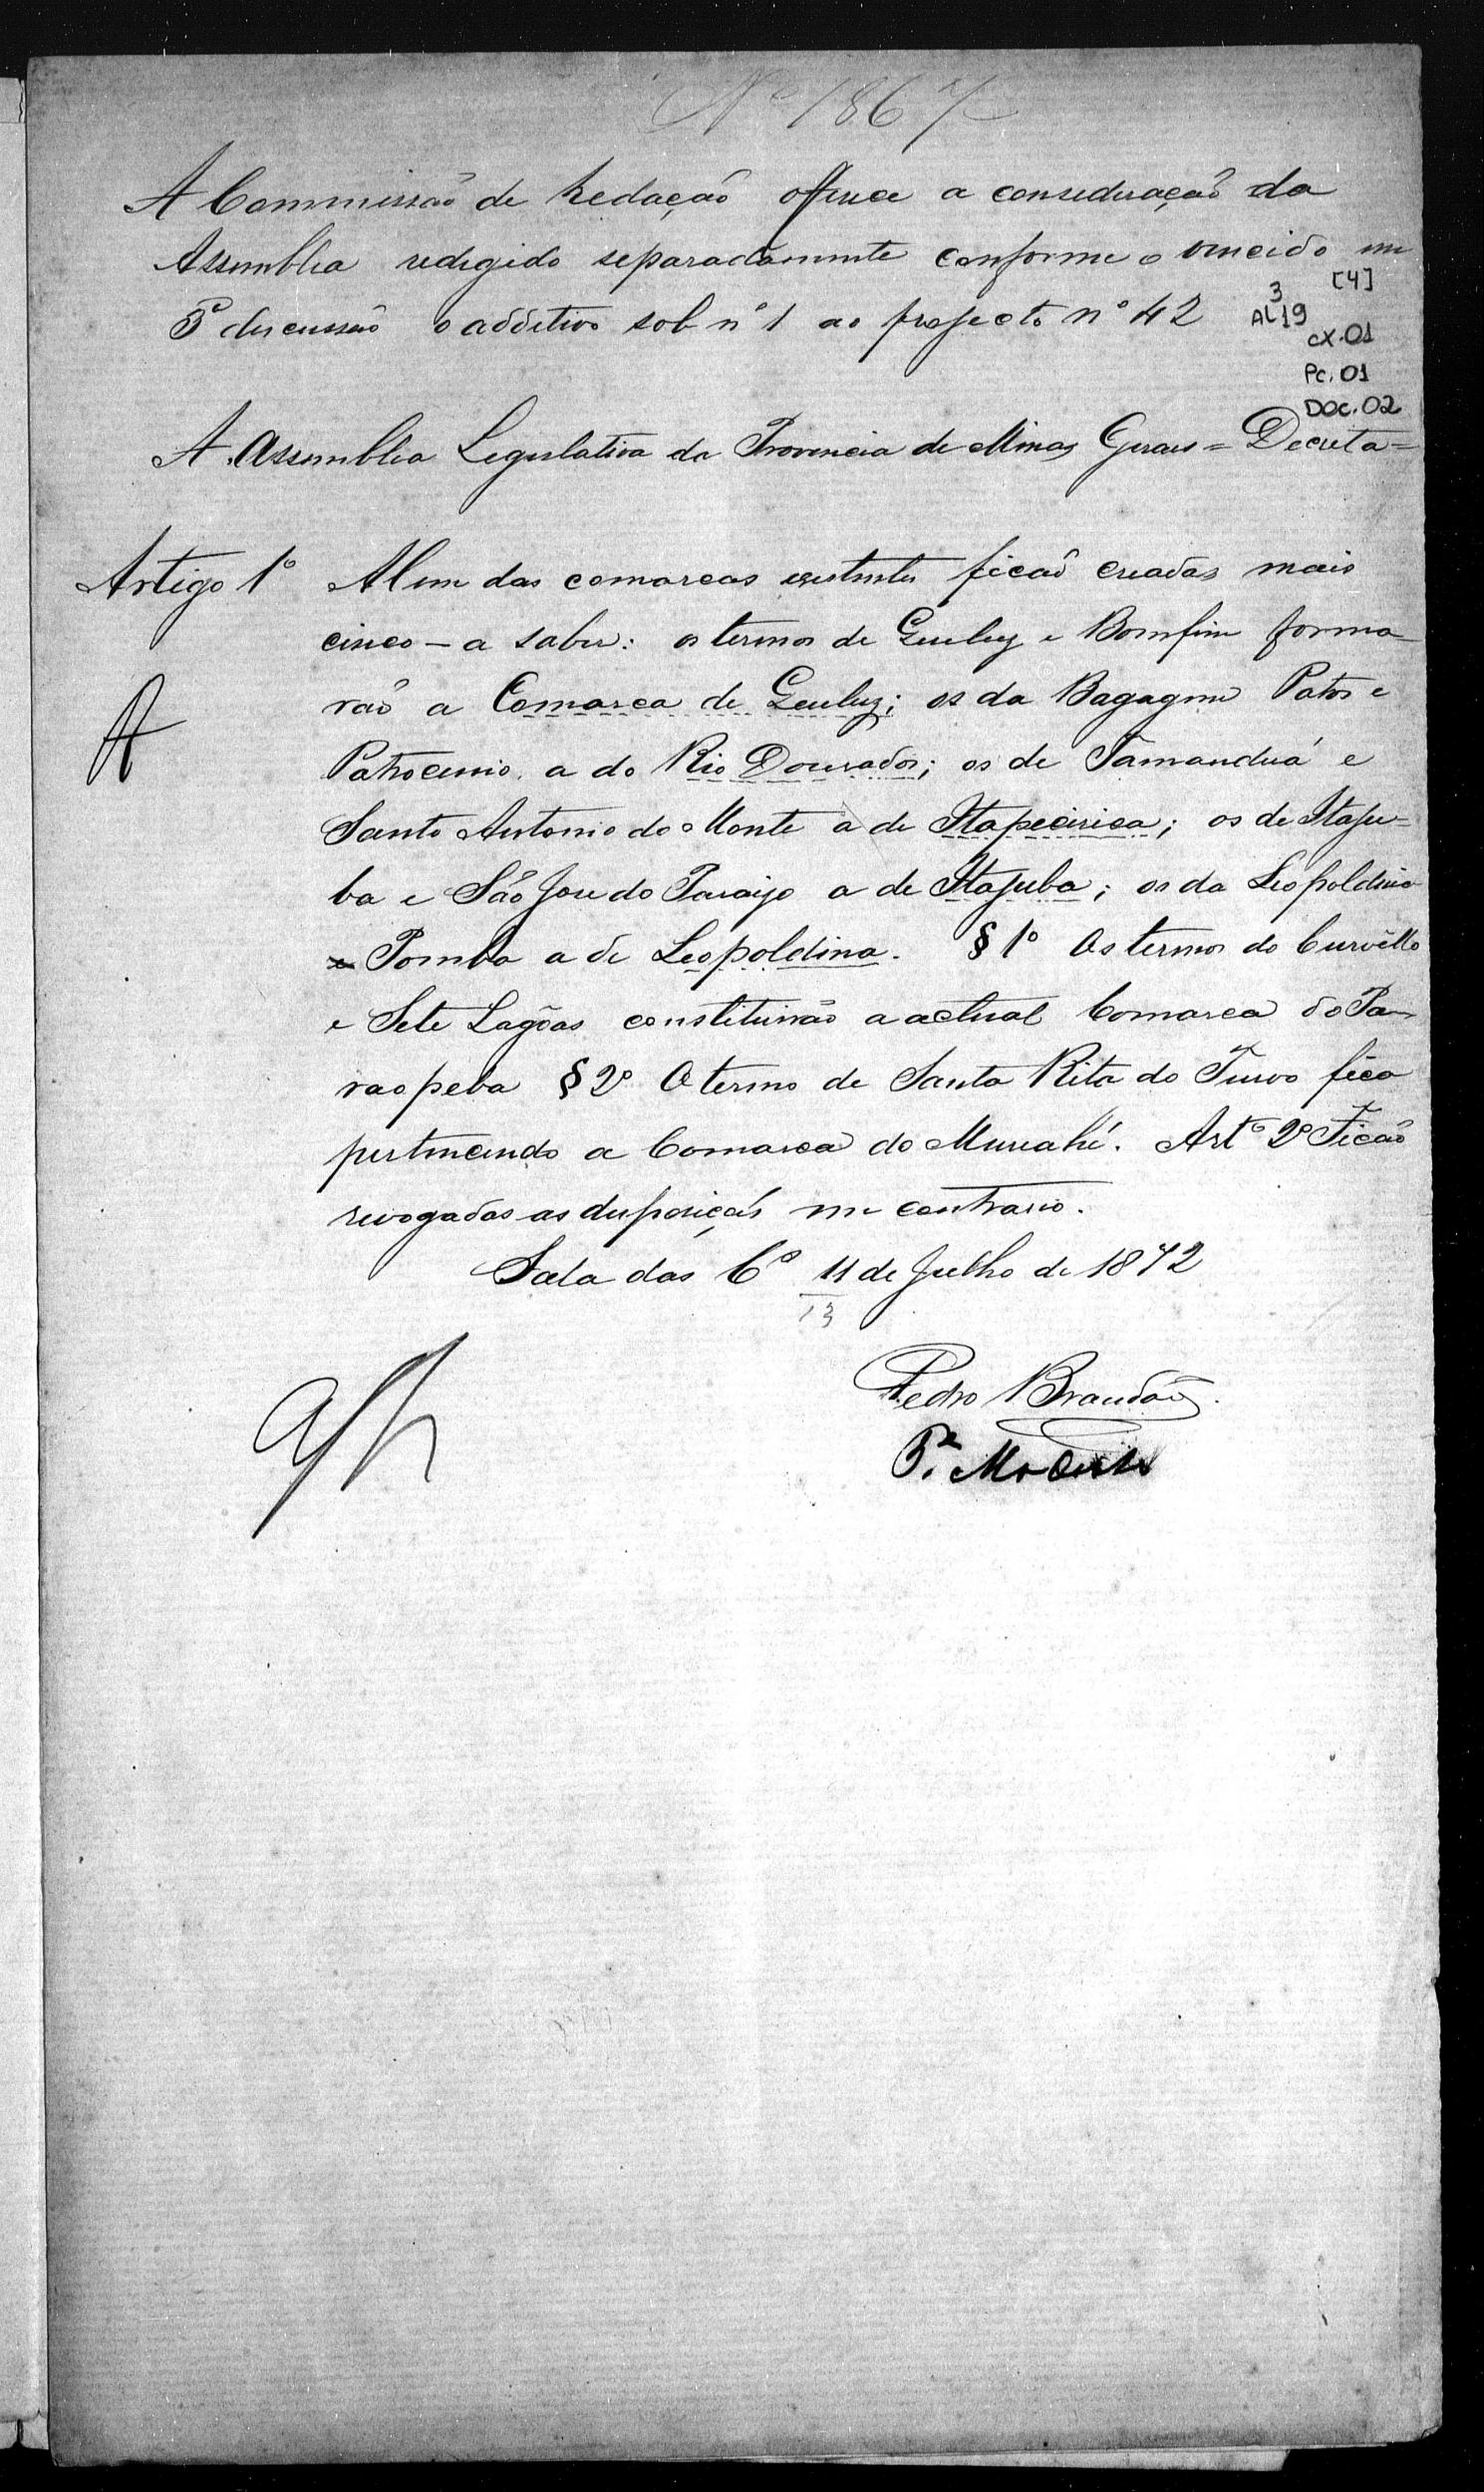 Nº 1867
A Commissão de Redação offerece a consideração da
Assemblea redigido separadamente conforme o vencido em
3ª discussão o additivo sob nº 1 ao projecto nº 42
[4]
3
AL19
CX.01
Pc. 01
Doc. 02
A Assemblea Legislativa da Provincia de Minas Geraes = Decreta =
Artigo 1º Alem das comarcas existentes ficaõ creadas mais
cinco - a saber: os termos de Queluz e Bomfim forma-
raõ a Comarca de Queluz; os da Bagagem Patos e
Patrocinio, a do Rio Dourados; os de Tamanduá e
Santo Antonio do Monte a de Itapecirica; os de Itaju-
ba e São José do Paraizo a de Itajuba; os da Leopoldina
e Pomba a de Leopoldina. § 1º Os termos do Curvêllo
e Sete Lagôas constituirão a actual Comarca do Pa-
raopeba § 2º O termo de Santa Rita do Turvo fica
pertencendo a Comarca do Muriahé. Artº 2º Ficaõ
revogadas as disposições em contrario.
Sala das Cº 11 de Julho de 1872
13
Pedro Brandaõ
Pe. Modesto